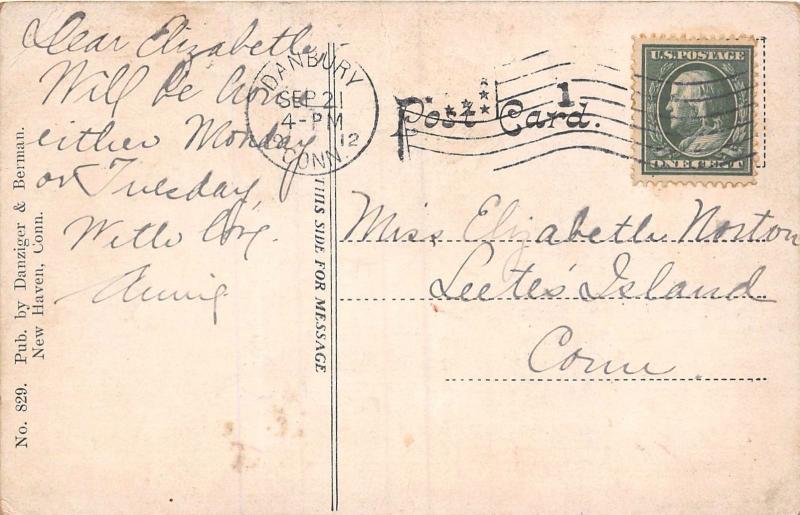 Dear Elizabeth,
Will be home
either Monday
or Tuesday,
With love.
Annie
No. 829. Pub. by Danziger & Berman.
New Haven, Conn.
THIS SIDE FOR MESSAGE
DANBURY
SEP 21
4-PM
12
CONN.
Post Card.
1
U.S. POSTAGE
ONE CENT
Miss Elizabeth Norton
Leete's Island
Conn